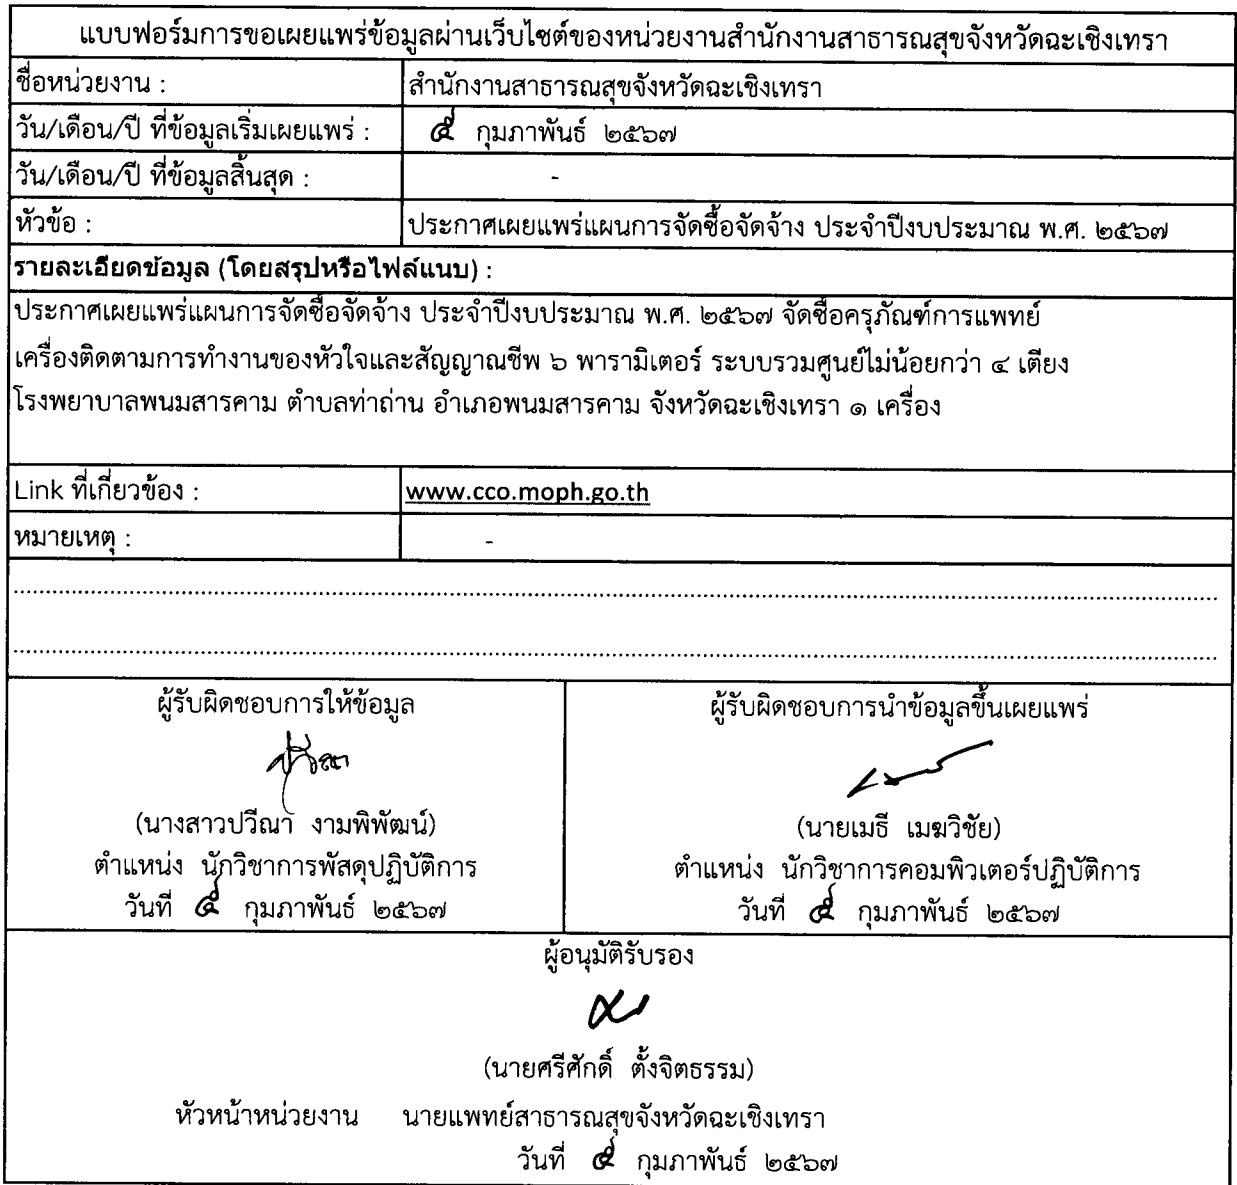 แบบฟอร์มการขอเผยแพร่ข้อมูลผ่านเว็บไซต์ของหน่วยงานสำนักงานสาธารณสุขจังหวัดฉะเชิงเทรา
ชื่อหน่วยงาน : สำนักงานสาธารณสุขจังหวัดฉะเชิงเทรา
วัน/เดือน/ปี ที่ข้อมูลเริ่มเผยแพร่ : ๕ กุมภาพันธ์ ๒๕๖๗
วัน/เดือน/ปี ที่ข้อมูลสิ้นสุด : -
หัวข้อ : ประกาศเผยแพร่แผนการจัดซื้อจัดจ้าง ประจำปีงบประมาณ พ.ศ. ๒๕๖๗
รายละเอียดข้อมูล (โดยสรุปหรือไฟล์แนบ) :
ประกาศเผยแพร่แผนการจัดซื้อจัดจ้าง ประจำปีงบประมาณ พ.ศ. ๒๕๖๗ จัดซื้อครุภัณฑ์การแพทย์
เครื่องติดตามการทำงานของหัวใจและสัญญาณชีพ ๖ พารามิเตอร์ ระบบรวมศูนย์ไม่น้อยกว่า ๔ เตียง
โรงพยาบาลพนมสารคาม ตำบลท่าถ่าน อำเภอพนมสารคาม จังหวัดฉะเชิงเทรา ๑ เครื่อง
Link ที่เกี่ยวข้อง : www.cco.moph.go.th
หมายเหตุ : -
ผู้รับผิดชอบการให้ข้อมูล
(นางสาวปวีณา งามพิพัฒน์)
ตำแหน่ง นักวิชาการพัสดุปฏิบัติการ
วันที่ ๕ กุมภาพันธ์ ๒๕๖๗
ผู้รับผิดชอบการนำข้อมูลขึ้นเผยแพร่
(นายเมธี เมฆวิชัย)
ตำแหน่ง นักวิชาการคอมพิวเตอร์ปฏิบัติการ
วันที่ ๕ กุมภาพันธ์ ๒๕๖๗
ผู้อนุมัติรับรอง
(นายศรีศักดิ์ ตั้งจิตธรรม)
หัวหน้าหน่วยงาน นายแพทย์สาธารณสุขจังหวัดฉะเชิงเทรา
วันที่ ๕ กุมภาพันธ์ ๒๕๖๗